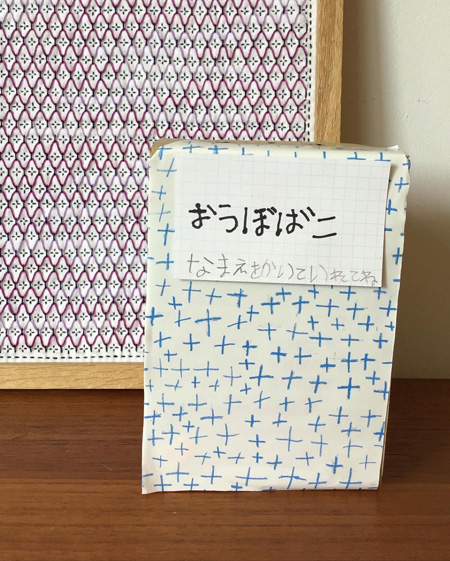 おうぼばこ
なまえをかいていれてね